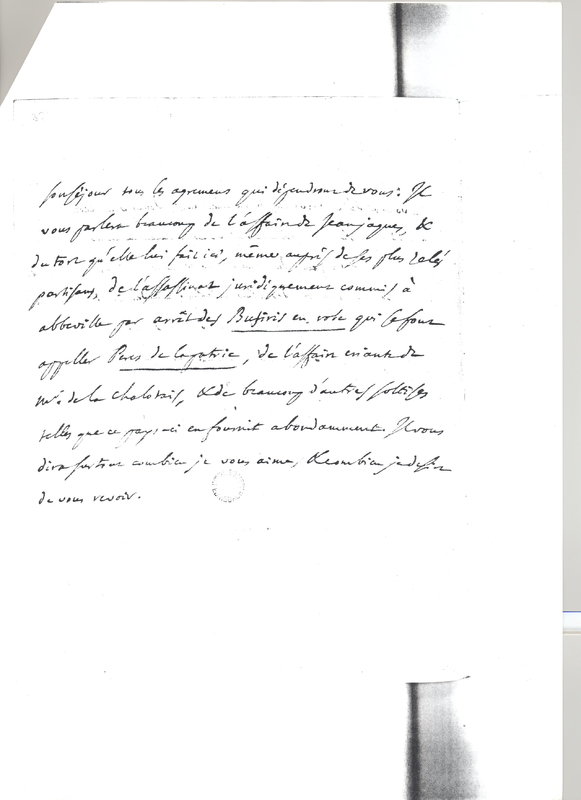 son séjour tous les agremens qui dépendront de vous: Il
vous parlera beaucoup de l'affaire de Jeanjaques, &
du tort qu'elle lui fait ici, même auprès de ses plus zelés
partisans, de l'assassinat juridiquement commis à
abbeville par arrêt des Busiris en robe qui se font
appeller Peres de la patrie, de l'affaire criante de
Mr. de la Chalotais, & de beaucoup d'autres sottises
telles que ce pays-ci en fournit abondamment. Il vous
dira surtout combien je vous aime, & combien je desire
de vous revoir.